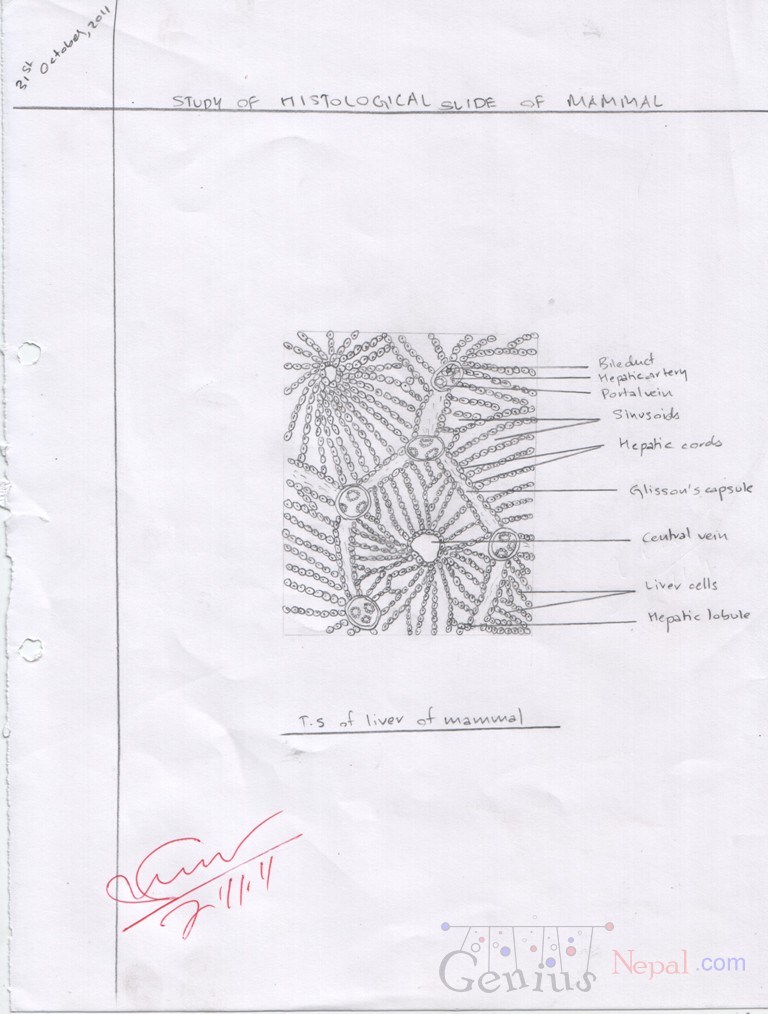 31st October, 2011
STUDY OF HISTOLOGICAL SLIDE OF MAMMAL
Bile duct
Hepatic artery
Portal vein
Sinusoids
Hepatic cords
Glisson's capsule
Central vein
Liver cells
Hepatic lobule
T.S of liver of mammal
Genius Nepal.com